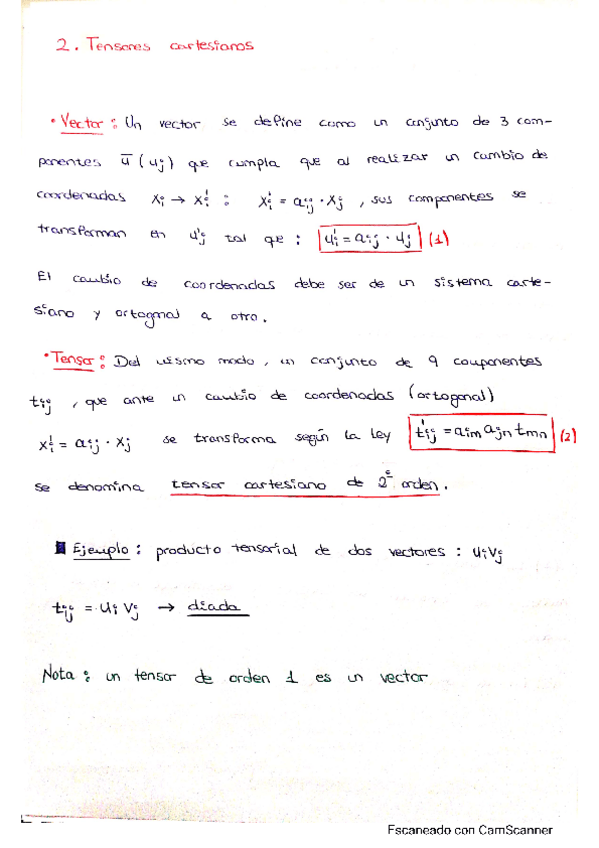 2. Tensores cartesianos
• Vector: Un vector se define como un conjunto de 3 com-
ponentes ū (uj) que cumpla que al realizar un cambio de
coordenadas xi → x'i : x'i = aij · xj , sus componentes se
transforman en u'j tal que : u'i = aij · uj (1)
El cambio de coordenadas debe ser de un sistema carte-
siano y ortogonal a otro.
• Tensor: Del mismo modo, un conjunto de 9 componentes
tij , que ante un cambio de coordenadas (ortogonal)
x'i = aij · xj se transforma según la ley t'ij = aim ajn tmn (2)
se denomina tensor cartesiano de 2º orden.
Ejemplo : producto tensorial de dos vectores : uivj
tij = ui vj → diada
Nota : un tensor de orden 1 es un vector
Escaneado con CamScanner